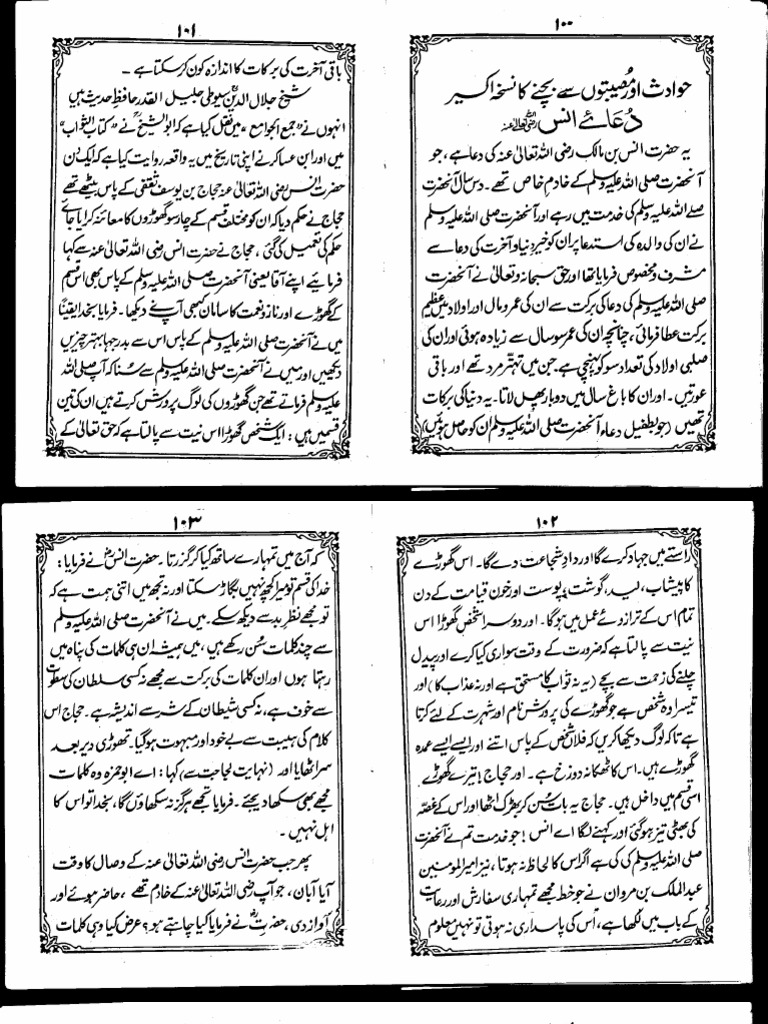 ۱۰۰
حوادث اور مُصیبتوں سے بچنے کا نسخہ اکسیر
دُعائے انس رضی اللہ تعالیٰ عنہ
یہ حضرت انس بن مالک رضی اللہ تعالیٰ عنہ کی دعا ہے، جو
آنحضرت صلی اللہ علیہ وسلم کے خادمِ خاص تھے۔ دس سال آنحضرت
صلے اللہ علیہ وسلم کی خدمت میں رہے اور آنحضرت صلی اللہ علیہ وسلم
نے ان کی والدہ کی استدعا پر ان کو خیرِ دنیا و آخرت کی دعا سے
مشرف و مخصوص فرمایا تھا اور حق سبحانہ و تعالیٰ نے آنحضرت
صلی اللہ علیہ وسلم کی دعا کی برکت سے ان کی عمر و مال اور اولاد میں عظیم
برکت عطا فرمائی، چنانچہ ان کی عمر سو سال سے زیادہ ہوئی اور ان کی
صلبی اولاد کی تعداد سو کو پہنچی ہے۔ جن میں تہتّر مرد تھے اور باقی
عورتیں۔ اور ان کا باغ سال میں دو بار پھل لاتا۔ یہ دنیا کی برکات
تھیں (جو بطفیل دعاء آنحضرت صلی اللہ علیہ وسلم ان کو حاصل ہوئیں)
۱۰۱
باقی آخرت کی برکات کا اندازہ کون کر سکتا ہے۔
شیخ جلال الدین سیوطیؒ جلیل القدر حافظِ حدیث ہیں
انہوں نے "جمع الجوامع" میں نقل کیا ہے کہ ابو الشیخؒ نے "کتاب الثواب"
میں اور ابن عساکر نے اپنی تاریخ میں یہ واقعہ روایت کیا ہے کہ ایک دن
حضرت انس رضی اللہ تعالیٰ عنہ حجاج بن یوسف ثقفی کے پاس بیٹھے تھے
حجاج نے حکم دیا کہ ان کو مختلف قسم کے چار سو گھوڑوں کا معائنہ کرایا جائے
حکم کی تعمیل کی گئی، حجاج نے حضرت انس رضی اللہ تعالیٰ عنہ سے کہا
فرمائیے اپنے آقا یعنی آنحضرت صلی اللہ علیہ وسلم کے پاس بھی اس قسم
کے گھوڑے اور ناز و نعمت کا سامان کبھی آپ نے دیکھا۔ فرمایا بخدا یقینًا
میں نے آنحضرت صلی اللہ علیہ وسلم کے پاس اس سے بدرجہا بہتر چیزیں
دیکھیں اور میں نے آنحضرت صلی اللہ علیہ وسلم سے سُنا کہ آپ صلی اللہ
علیہ وسلم فرماتے تھے جن گھوڑوں کی لوگ پرورش کرتے ہیں ان کی تین
قسمیں ہیں: ایک شخص گھوڑا اس نیت سے پالتا ہے کہ حق تعالیٰ کے
۱۰۲
راستے میں جہاد کرے گا اور دادِ شجاعت دے گا۔ اس گھوڑے
کا پیشاب، لید، گوشت پوست اور خون قیامت کے دن
تمام اس کے ترازوئے عمل میں ہوگا۔ اور دوسرا شخص گھوڑا اس
نیت سے پالتا ہے کہ ضرورت کے وقت سواری کیا کرے اور پیدل
چلنے کی زحمت سے بچے (یہ نہ ثواب کا مستحق ہے اور نہ عذاب کا) اور
تیسرا وہ شخص ہے جو گھوڑے کی پرورش نام اور شہرت کے لئے کرتا
ہے تاکہ لوگ دیکھا کریں کہ فلاں شخص کے پاس اتنے اور ایسے ایسے عمدہ
گھوڑے ہیں۔ اس کا ٹھکانہ دوزخ ہے۔ اور حجاج! تیرے گھوڑے
اسی قسم میں داخل ہیں۔ حجاج یہ بات سُن کر بھڑک اُٹھا اور اس کے غصّہ
کی بھٹی تیز ہوگئی اور کہنے لگا اے انس! جو خدمت تم نے آنحضرت
صلی اللہ علیہ وسلم کی کی ہے اگر اس کا لحاظ نہ ہوتا، نیز امیر المومنین
عبدالملک بن مروان نے جو خط مجھے تمہاری سفارش اور رعایت
کے باب میں لکھا ہے، اس کی پاسداری نہ ہوتی تو نہیں معلوم
۱۰۳
کہ آج میں تمہارے ساتھ کیا کر گزرتا۔ حضرت انسؓ نے فرمایا:
خدا کی قسم تو میرا کچھ نہیں بگاڑ سکتا اور نہ تجھ میں اتنی ہمت ہے کہ
تو مجھے نظرِ بد سے دیکھ سکے۔ میں نے آنحضرت صلی اللہ علیہ وسلم
سے چند کلمات سُن رکھے ہیں، میں ہمیشہ ان ہی کلمات کی پناہ میں
رہتا ہوں اور ان کلمات کی برکت سے مجھے نہ کسی سلطان کی سطوت
سے خوف ہے، نہ کسی شیطان کے شر سے اندیشہ ہے۔ حجاج اس
کلام کی ہیبت سے بے خود اور مبہوت ہوگیا۔ تھوڑی دیر بعد
سر اٹھایا اور (نہایت لجاجت سے) کہا: اے ابو حمزہ وہ کلمات
مجھے بھی سکھا دیجئے۔ فرمایا تجھے ہرگز نہ سکھاؤں گا، بخدا تو اس کا
اہل نہیں۔
پھر جب حضرت انس رضی اللہ تعالیٰ عنہ کے وصال کا وقت
آیا آبان، جو آپ رضی اللہ تعالیٰ عنہ کے خادم تھے، حاضر ہوئے اور
آواز دی، حضرتؓ نے فرمایا کیا چاہتے ہو؟ عرض کیا وہی کلمات